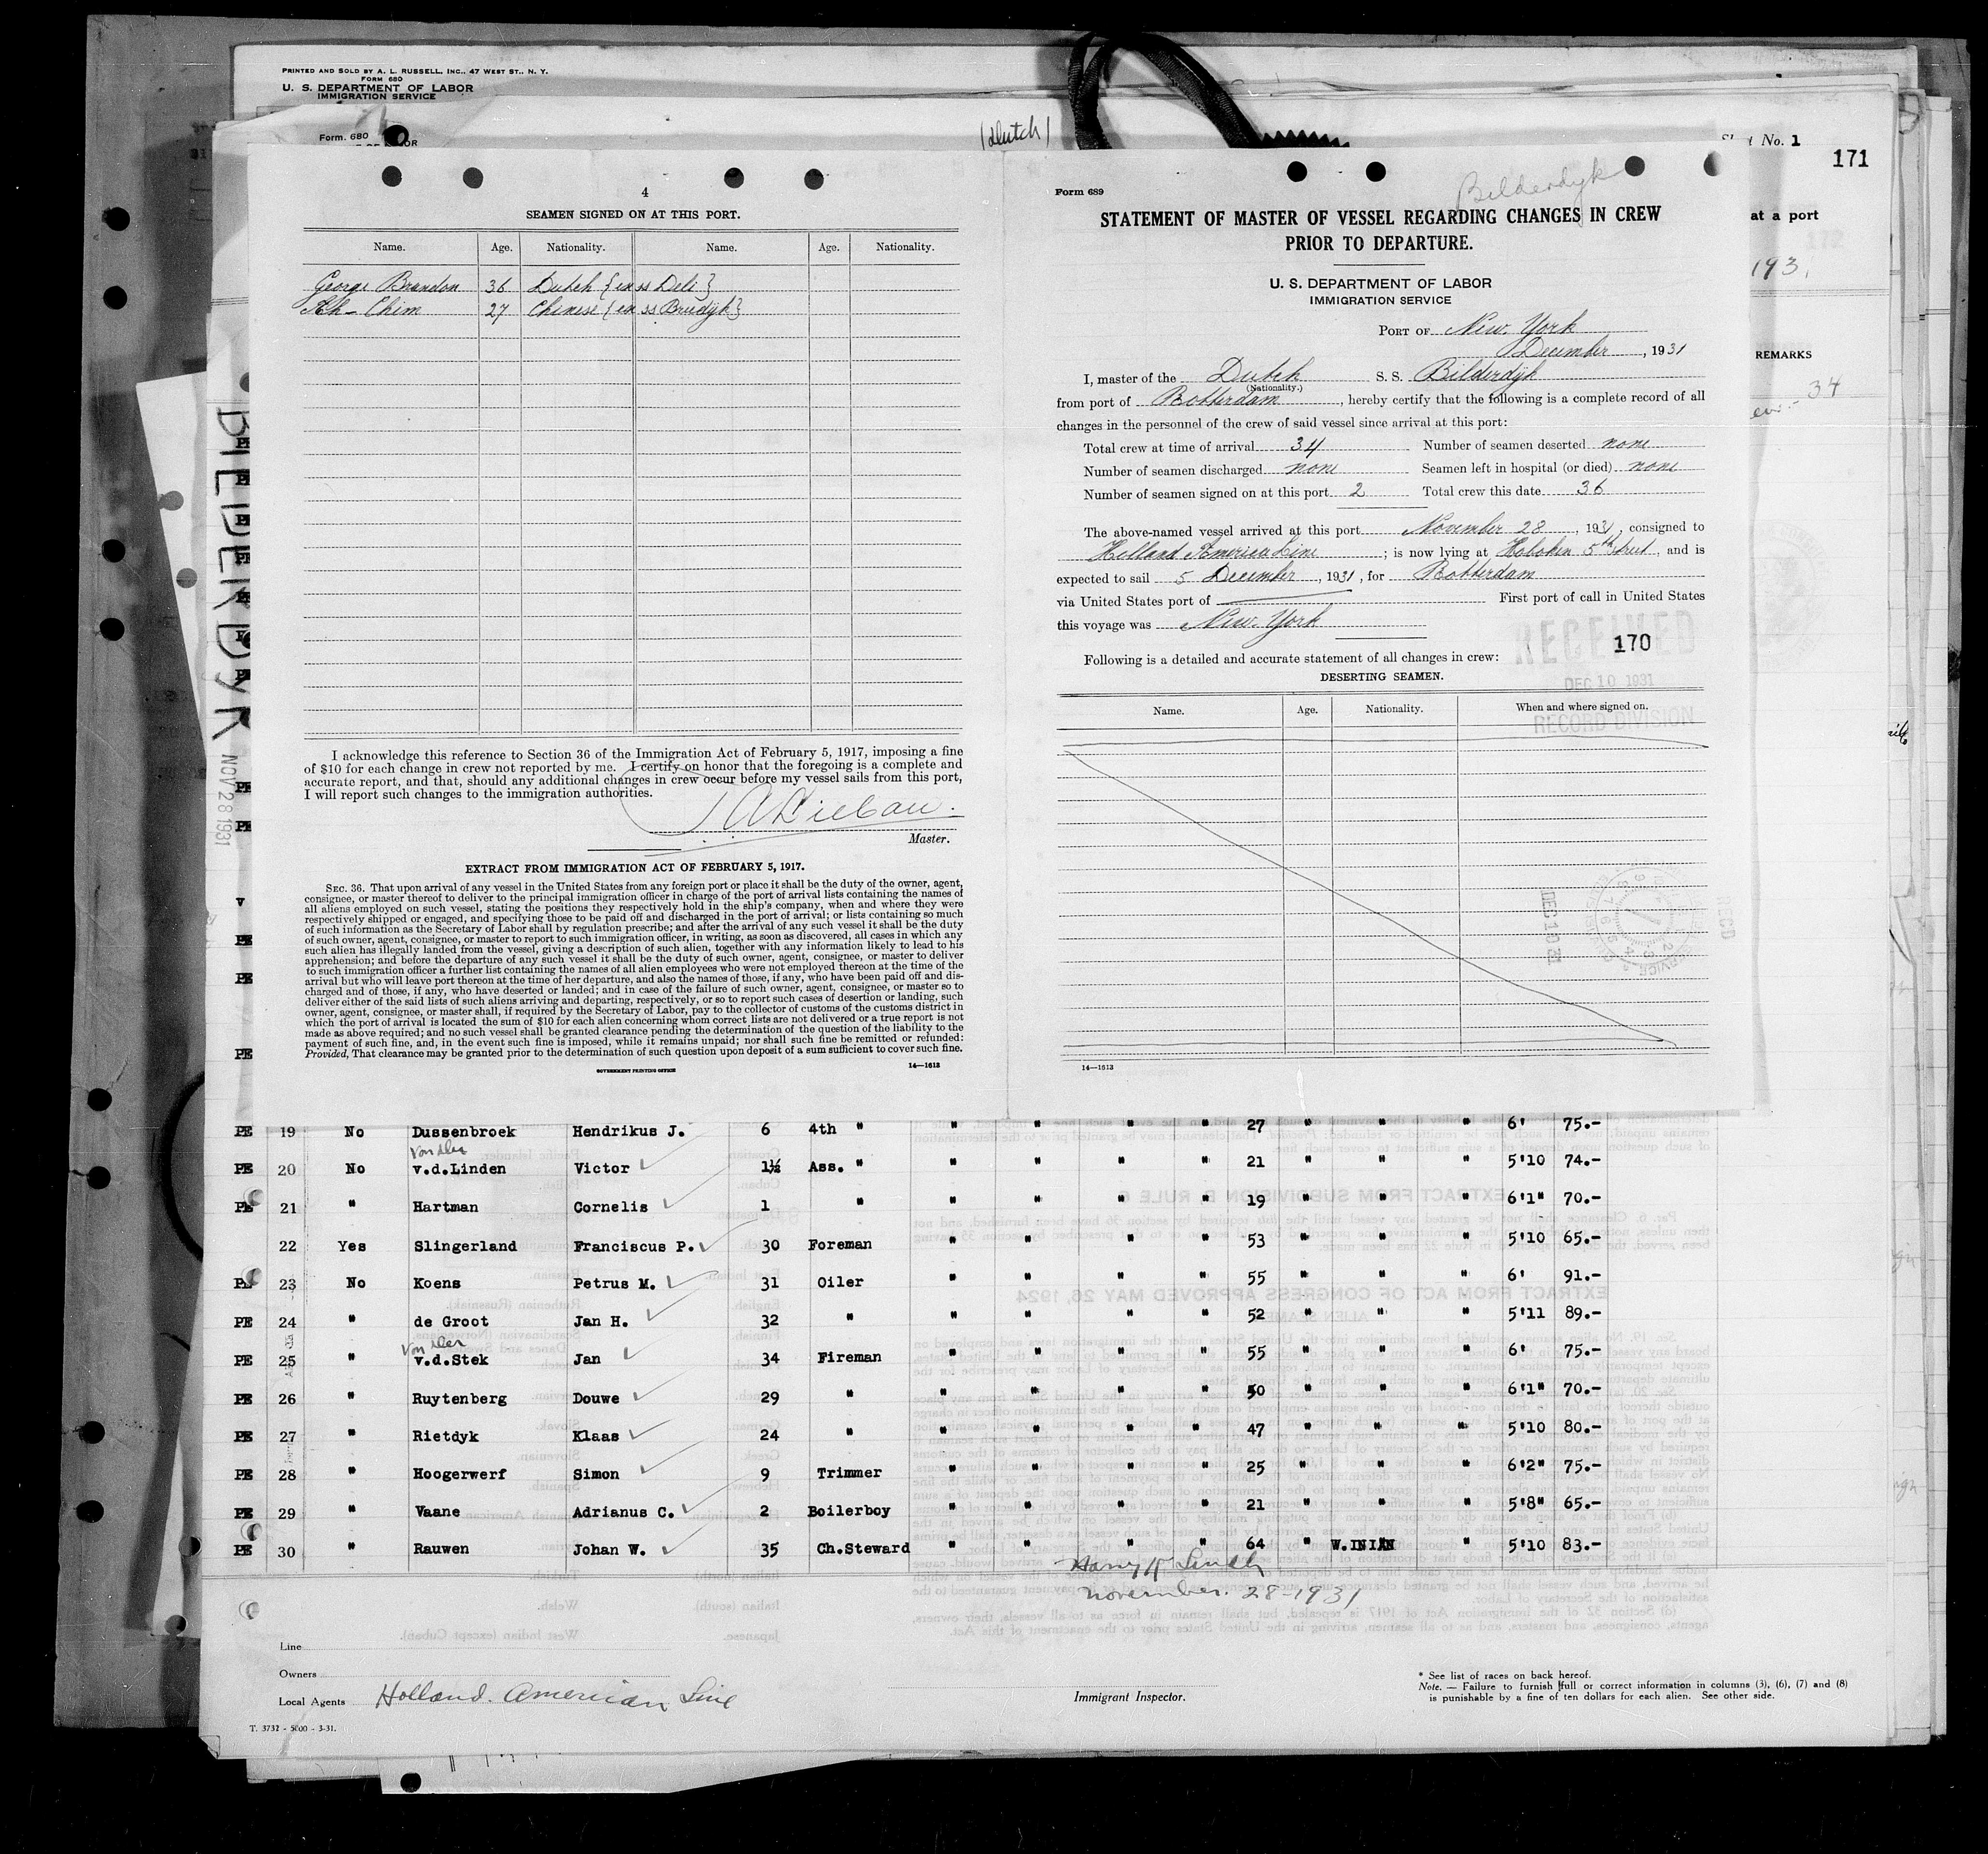 PRINTED AND SOLD BY A. L. RUSSELL, INC., 47 WEST ST., N. Y.
FORM 680
U. S. DEPARTMENT OF LABOR
IMMIGRATION SERVICE
Form. 680
(Dutch)
No. 1
171
at a port
172
193
REMARKS
34
BILDERDYK
NOV 28 1931
4
SEAMEN SIGNED ON AT THIS PORT.
Name. Age. Nationality. Name. Age. Nationality.
George Brandon 36 Dutch {ex ss Deli}
Ah-Chim 27 Chinese {ex ss Breedijk}
I acknowledge this reference to Section 36 of the Immigration Act of February 5, 1917, imposing a fine
of $10 for each change in crew not reported by me. I certify on honor that the foregoing is a complete and
accurate report, and that, should any additional changes in crew occur before my vessel sails from this port,
I will report such changes to the immigration authorities.
Master.
EXTRACT FROM IMMIGRATION ACT OF FEBRUARY 5, 1917.
SEC. 36. That upon arrival of any vessel in the United States from any foreign port or place it shall be the duty of the owner, agent,
consignee, or master thereof to deliver to the principal immigration officer in charge of the port of arrival lists containing the names of
all aliens employed on such vessel, stating the positions they respectively hold in the ship's company, when and where they were
respectively shipped or engaged, and specifying those to be paid off and discharged in the port of arrival; or lists containing so much
of such information as the Secretary of Labor shall by regulation prescribe; and after the arrival of any such vessel it shall be the duty
of such owner, agent, consignee, or master to report to such immigration officer, in writing, as soon as discovered, all cases in which any
such alien has illegally landed from the vessel, giving a description of such alien, together with any information likely to lead to his
apprehension; and before the departure of any such vessel it shall be the duty of such owner, agent, consignee, or master to deliver
to such immigration officer a further list containing the names of all alien employees who were not employed thereon at the time of the
arrival but who will leave port thereon at the time of her departure, and also the names of those, if any, who have been paid off and dis-
charged and of those, if any, who have deserted or landed; and in case of the failure of such owner, agent, consignee, or master so to
deliver either of the said lists of such aliens arriving and departing, respectively, or so to report such cases of desertion or landing, such
owner, agent, consignee, or master shall, if required by the Secretary of Labor, pay to the collector of customs of the customs district in
which the port of arrival is located the sum of $10 for each alien concerning whom correct lists are not delivered or a true report is not
made as above required; and no such vessel shall be granted clearance pending the determination of the question of the liability to the
payment of such fine, and, in the event such fine is imposed, while it remains unpaid; nor shall such fine be remitted or refunded:
Provided, That clearance may be granted prior to the determination of such question upon deposit of a sum sufficient to cover such fine.
GOVERNMENT PRINTING OFFICE 14—1613
Bilderdyk
Form 689
STATEMENT OF MASTER OF VESSEL REGARDING CHANGES IN CREW
PRIOR TO DEPARTURE.
U. S. DEPARTMENT OF LABOR
IMMIGRATION SERVICE
PORT OF New. York
December, 1931
I, master of the Dutch S. S. Bilderdijk
(Nationality.)
from port of Rotterdam, hereby certify that the following is a complete record of all
changes in the personnel of the crew of said vessel since arrival at this port:
Total crew at time of arrival 34 Number of seamen deserted none
Number of seamen discharged none Seamen left in hospital (or died) none
Number of seamen signed on at this port 2 Total crew this date 36
The above-named vessel arrived at this port November 28, 1931, consigned to
Holland America Line; is now lying at Hoboken 5th street, and is
expected to sail 5 December, 1931, for Rotterdam
via United States port of First port of call in United States
this voyage was New. York
RECEIVED
170
Following is a detailed and accurate statement of all changes in crew:
DEC 10 1931
DESERTING SEAMEN.
Name. Age. Nationality. When and where signed on.
RECORD DIVISION
DEC 10 31
REC'D
14—1613
PE 19 No Dussenbroek Hendrikus J. 6 4th " " " " " 27 " " " 6' 75.-
Von der
PE 20 No v.d.Linden Victor 1½ Ass. " " " " " 21 " " " 5'10 74.-
PE 21 " Hartman Cornelis 1 " " " " " 19 " " " 6'1" 70.-
22 Yes Slingerland Franciscus P. 30 Foreman " " " " 53 " " " 5'10 65.-
PE 23 No Koens Petrus M. 31 Oiler " " " " 55 " " " 6' 91.-
PE 24 " de Groot Jan H. 32 " " " " " 52 " " " 5'11 89.-
Von der
PE 25 " v.d.Stek Jan 34 Fireman " " " " 55 " " " 6' 75.-
PE 26 " Ruytenberg Douwe 29 " " " " " 50 " " " 6'1" 70.-
PE 27 " Rietdyk Klaas 24 " " " " " 47 " " " 5'10 80.-
PE 28 " Hoogerwerf Simon 9 Trimmer " " " " 25 " " " 6'2" 75.-
PE 29 " Vaane Adrianus C. 2 Boilerboy " " " " 21 " " " 5'8" 65.-
PE 30 " Rauwen Johan W. 35 Ch.Steward " " " " 64 " W.INIAN " 5'10 83.-
November. 28-1931
Line
Owners
Local Agents Holland. American Line
Immigrant Inspector.
* See list of races on back hereof.
Note. — Failure to furnish full or correct information in columns (3), (6), (7) and (8)
is punishable by a fine of ten dollars for each alien. See other side.
T. 3732 - 5000 - 3-31.